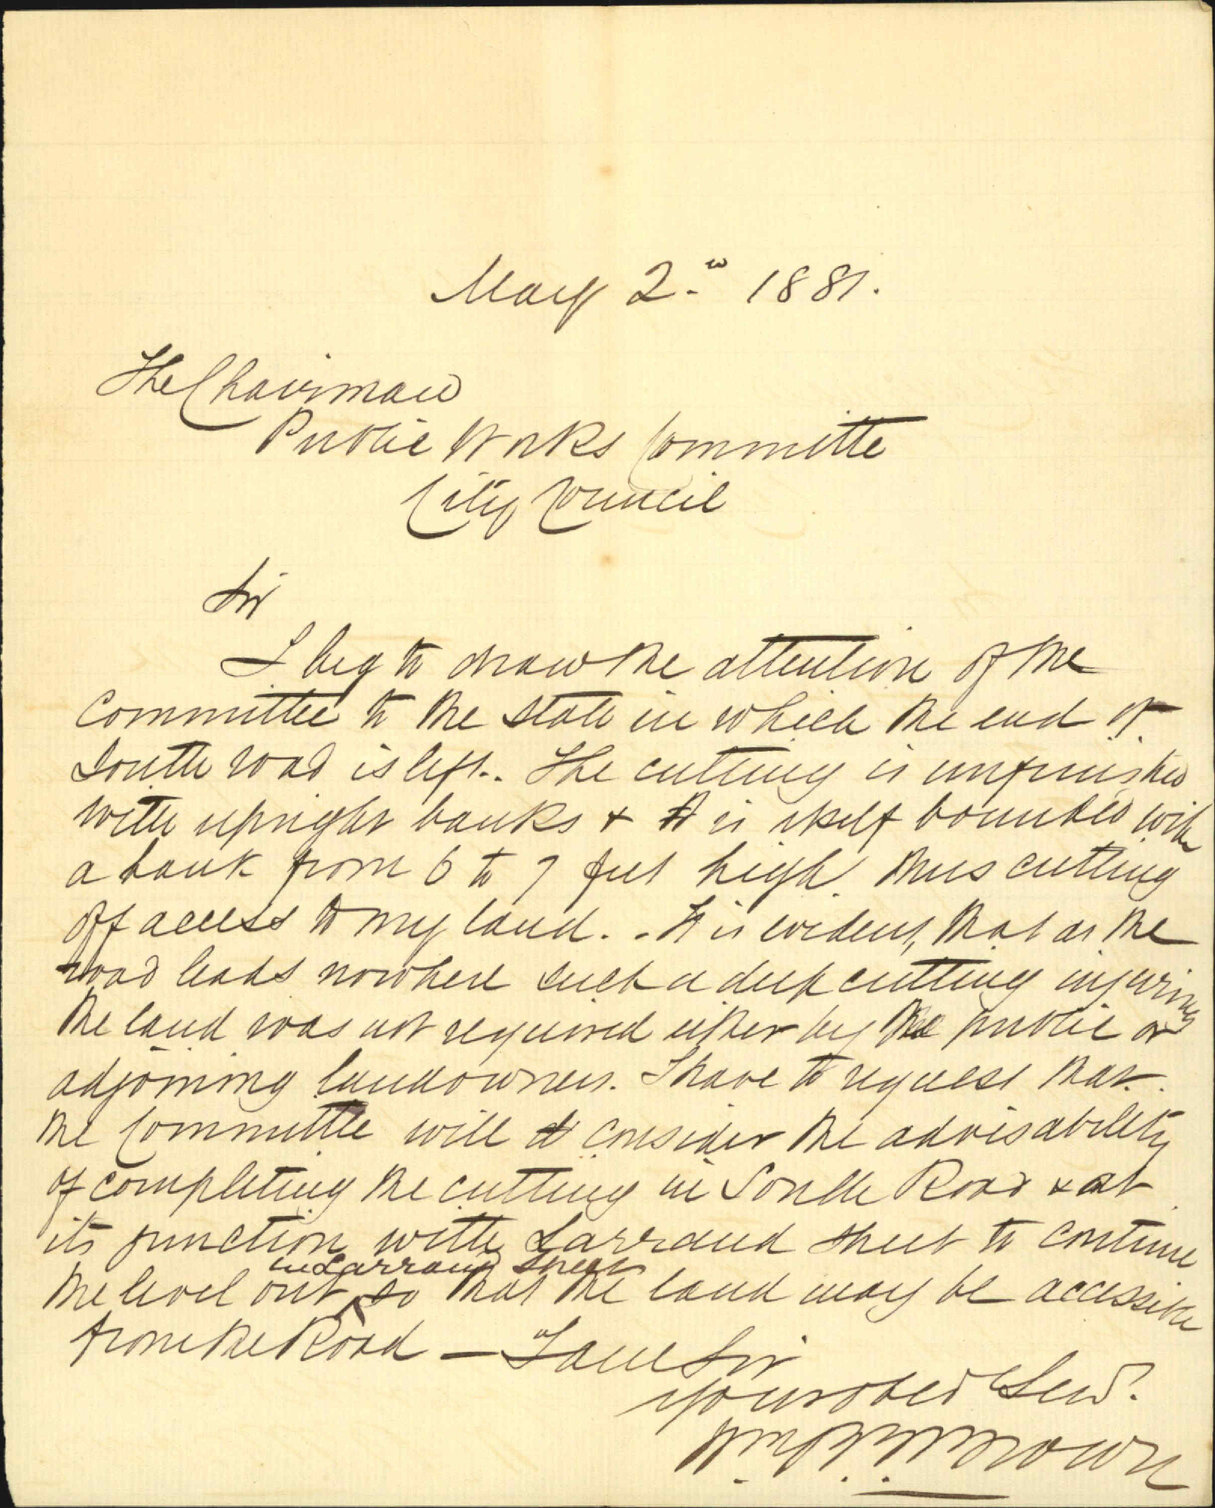 May 2nd 1881.
The Chairman
Public Works Committe
City Council
Sir
I beg to draw the attention of the
Committee to the state in which the end of
South road is left. The cutting is unfinished
with upright banks & it is itself bounded with
a bank from 6 to 7 feet high. thus cutting
off access to my land. - It is evident, that as the
road leads nowhere such a deep cutting injuring
the land was not required either by the public or
adjoining landowners. I have to request that
the Committee will consider the advisability
of completing the cutting in South Road & at
its junction with Larraud street to continue
in Larraud Street
the level out so that the land may be accessible
from the Road — I am Sir
your obed Serv.
Wm Brown